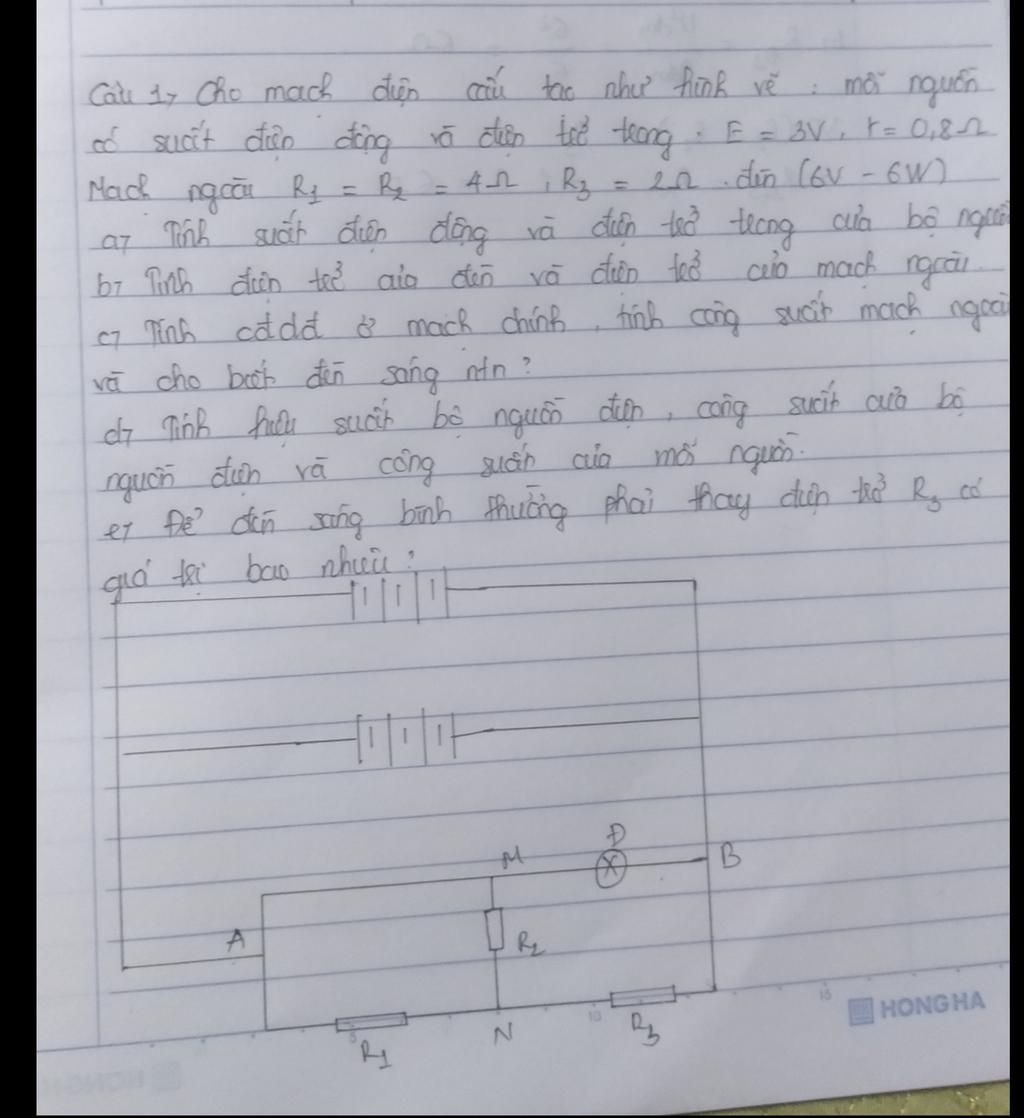 Câu 1, Cho mạch điện cấu tạo như hình vẽ : mỗi nguồn
có suất điện động và điện trở trong : E = 3V, r = 0,8Ω
Mạch ngoài R1 = R2 = 4Ω, R3 = 2Ω. đèn (6V - 6W)
a, Tính suất điện động và điện trở trong của bộ nguồn
b, Tính điện trở của đèn và điện trở của mạch ngoài.
c, Tính cđdđ ở mạch chính, tính công suất mạch ngoài
và cho biết đèn sáng ntn ?
d, Tính hiệu suất bộ nguồn điện, công suất của bộ
nguồn điện và công suất của mỗi nguồn.
e, Để đèn sáng bình thường phải thay điện trở R3 có
giá trị bao nhiêu ?
Đ
M
B
A
R2
R1
N
R3
5
10
15
HONG HA
HONG HA